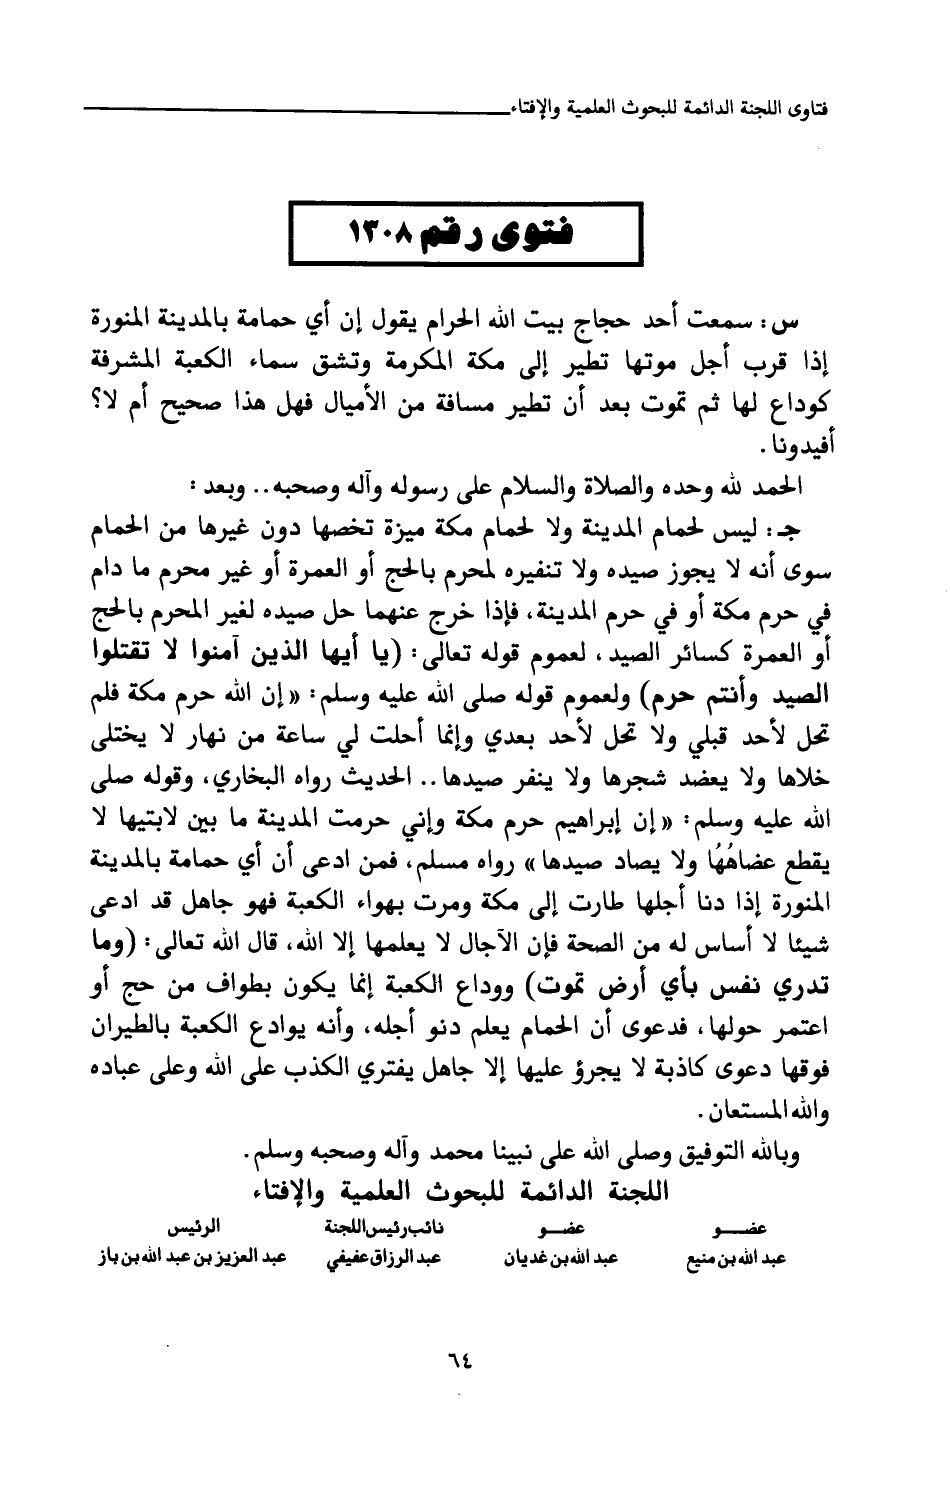 فتاوى اللجنة الدائمة للبحوث العلمية والإفتاء
فتوى رقم ١٣٠٨
س : سمعت أحد حجاج بيت الله الحرام يقول إن أي حمامة بالمدينة المنورة
إذا قرب أجل موتها تطير إلى مكة المكرمة وتشق سماء الكعبة المشرفة
كوداع لها ثم تموت بعد أن تطير مسافة من الأميال فهل هذا صحيح أم لا؟
أفيدونا .
الحمد لله وحده والصلاة والسلام على رسوله وآله وصحبه .. وبعد :
جـ : ليس لحمام المدينة ولا لحمام مكة ميزة تخصها دون غيرها من الحمام
سوى أنه لا يجوز صيده ولا تنفيره لمحرم بالحج أو العمرة أو غير محرم ما دام
في حرم مكة أو في حرم المدينة، فإذا خرج عنهما حل صيده لغير المحرم بالحج
أو العمرة كسائر الصيد ، لعموم قوله تعالى : (يا أيها الذين آمنوا لا تقتلوا
الصيد وأنتم حرم) ولعموم قوله صلى الله عليه وسلم : « إن الله حرم مكة فلم
تحل لأحد قبلي ولا تحل لأحد بعدي وإنما أحلت لي ساعة من نهار لا يختلى
خلاها ولا يعضد شجرها ولا ينفر صيدها .. الحديث رواه البخاري، وقوله صلى
الله عليه وسلم : « إن إبراهيم حرم مكة وإني حرمت المدينة ما بين لابتيها لا
يقطع عضاهُهُا ولا يصاد صيدها » رواه مسلم، فمن ادعى أن أي حمامة بالمدينة
المنورة إذا دنا أجلها طارت إلى مكة ومرت بهواء الكعبة فهو جاهل قد ادعى
شيئا لا أساس له من الصحة فإن الآجال لا يعلمها إلا الله، قال الله تعالى : (وما
تدري نفس بأي أرض تموت) ووداع الكعبة إنما يكون بطواف من حج أو
اعتمر حولها، فدعوى أن الحمام يعلم دنو أجله، وأنه يوادع الكعبة بالطيران
فوقها دعوى كاذبة لا يجرؤ عليها إلا جاهل يفتري الكذب على الله وعلى عباده
والله المستعان .
وبالله التوفيق وصلى الله على نبينا محمد وآله وصحبه وسلم .
اللجنة الدائمة للبحوث العلمية والإفتاء
عضــــو عضـــو نائب رئيس اللجنة الرئيس
عبد الله بن منيع عبد الله بن غديان عبد الرزاق عفيفي عبد العزيز بن عبد الله بن باز
٦٤